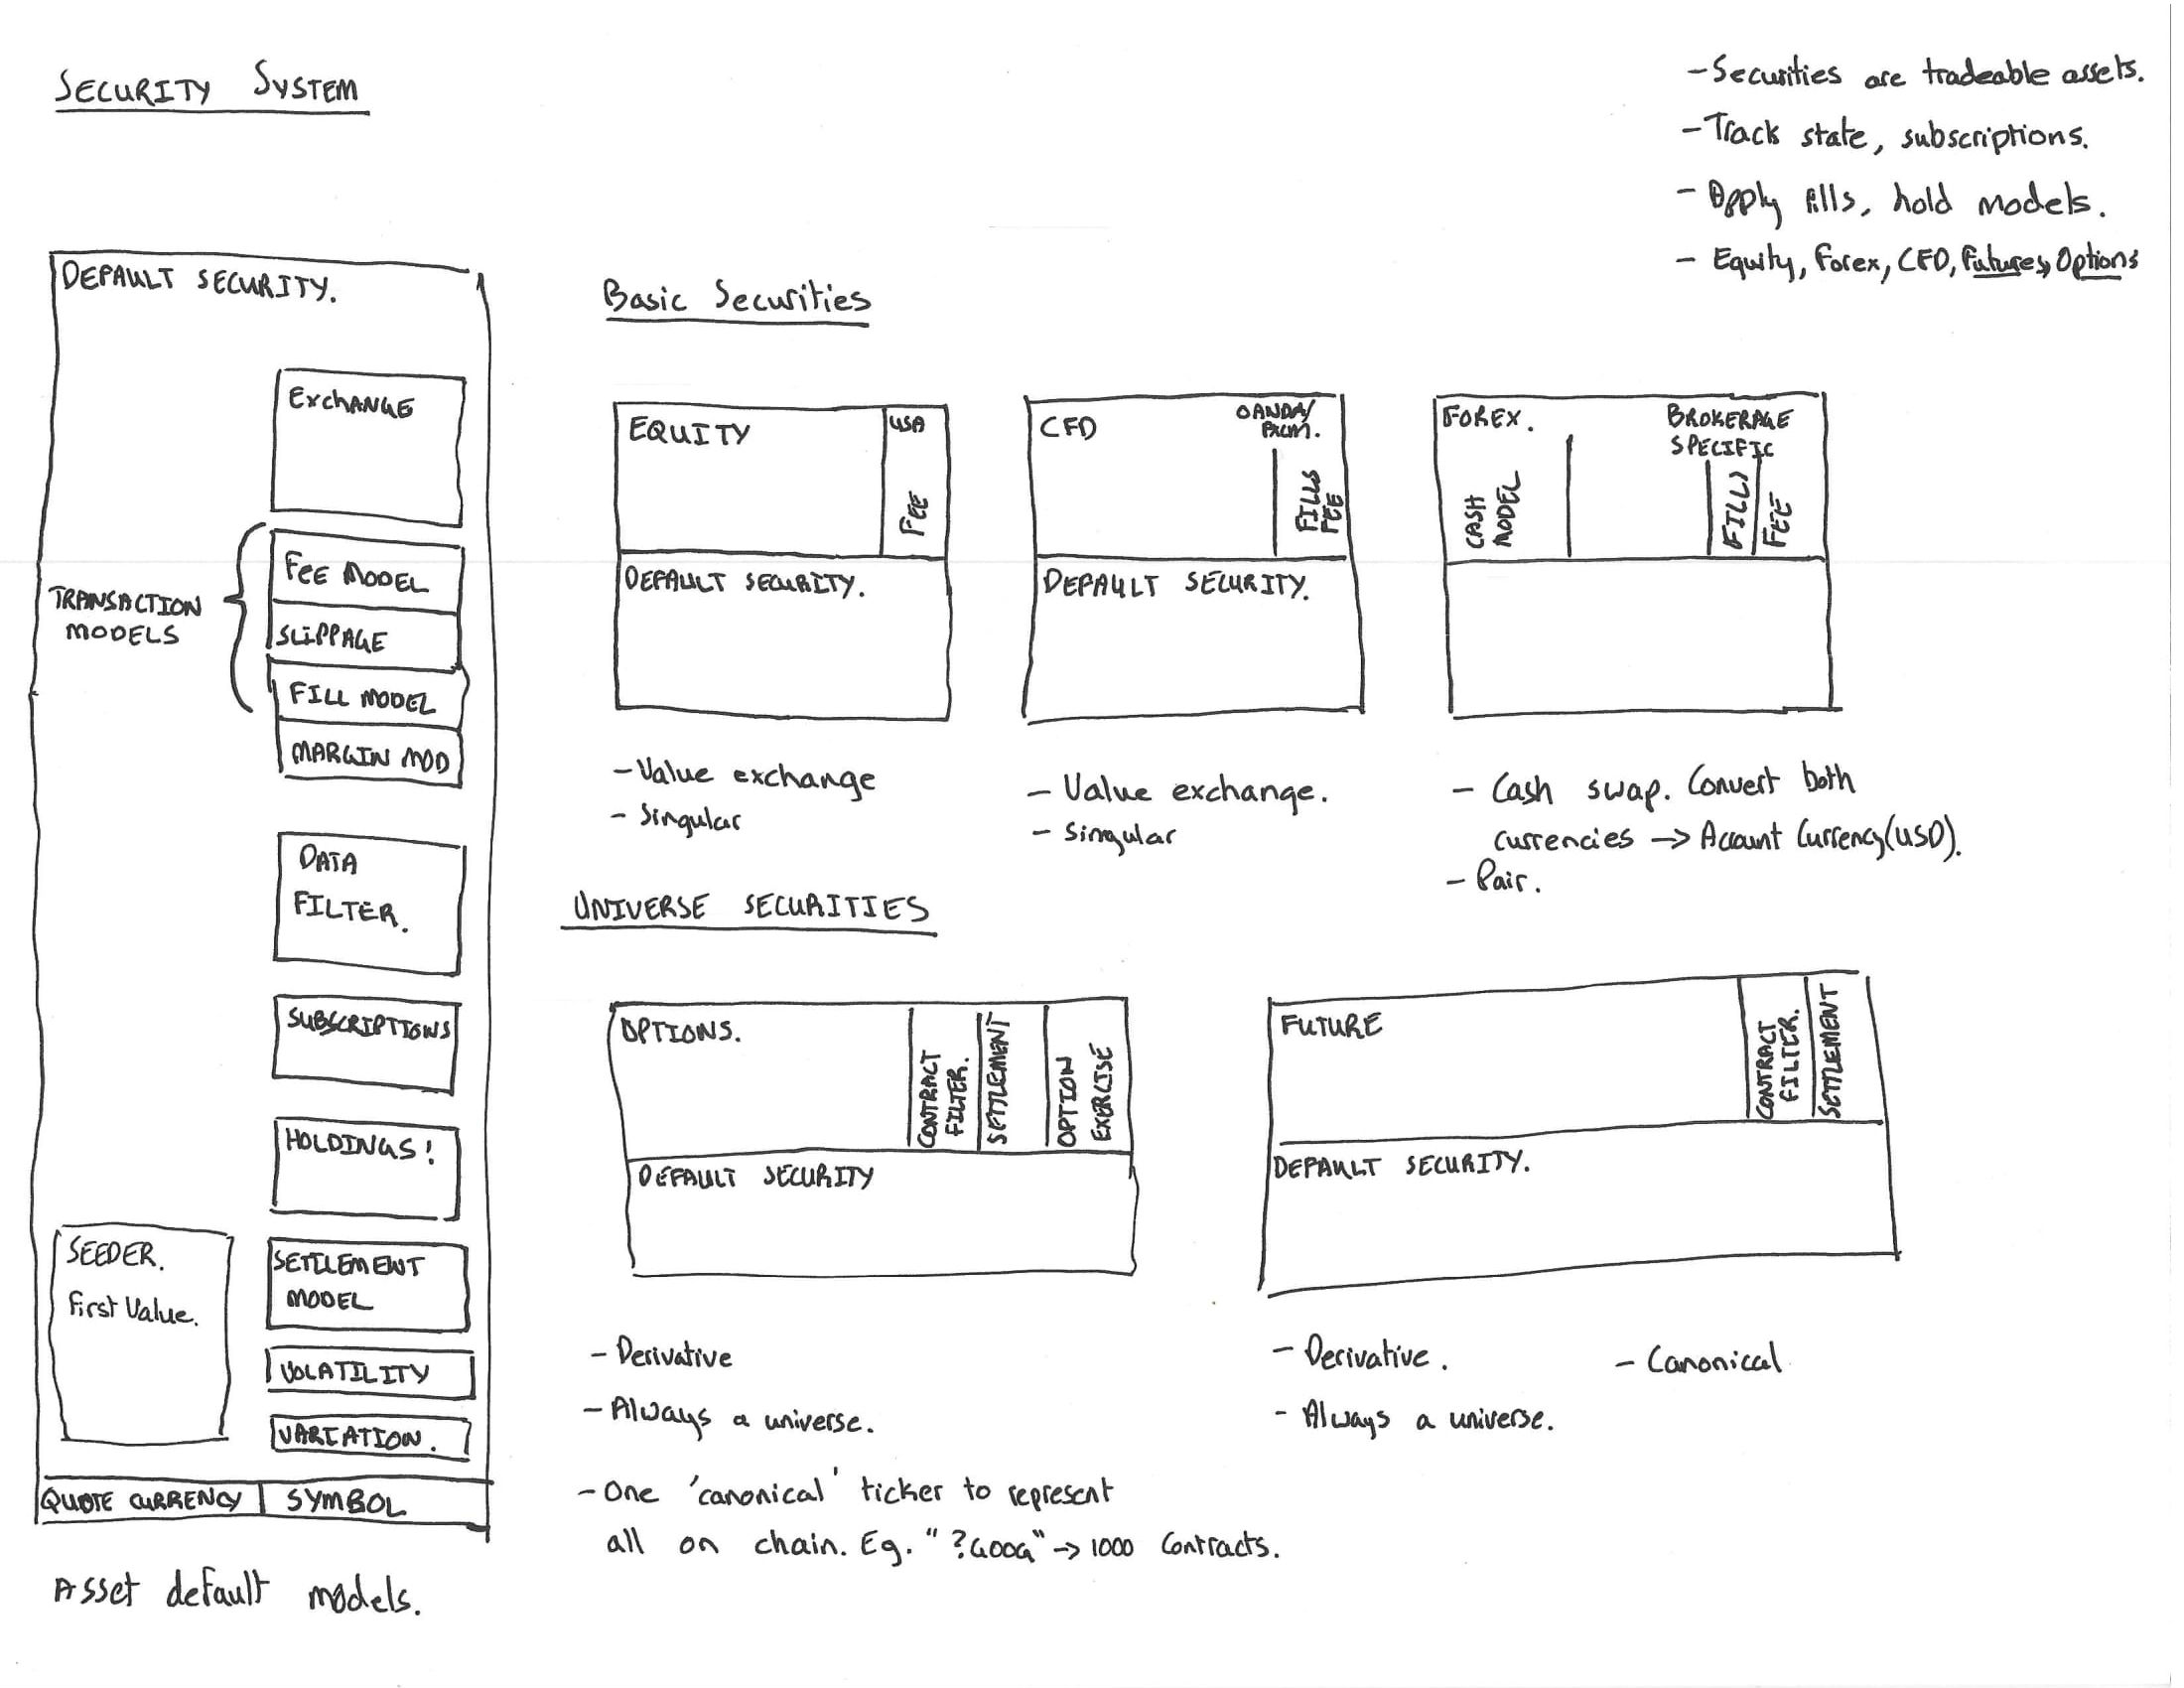 SECURITY SYSTEM
- Securities are tradeable assets.
- Track state, subscriptions.
- Apply fills, hold models.
- Equity, Forex, CFD, Futures, Options
DEFAULT SECURITY.
Exchange
TRANSACTION
MODELS
FEE MODEL
SLIPPAGE
FILL MODEL
MARGIN MOD
DATA
FILTER.
SUBSCRIPTIONS
HOLDINGS!
SEEDER.
First Value.
SETTLEMENT
MODEL
VOLATILITY
VARIATION.
QUOTE CURRENCY
SYMBOL
Asset default models.
Basic Securities
EQUITY
USA
FEE
DEFAULT SECURITY.
- Value exchange
- Singular
CFD
OANDA/
FXCM.
FILLS
FEE
DEFAULT SECURITY.
- Value exchange.
- Singular
FOREX.
BROKERAGE
SPECIFIC
CASH
MODEL
FEE
- Cash swap. Convert both
currencies -> Account Currency (USD).
- Pair.
UNIVERSE SECURITIES
OPTIONS.
CONTRACT
FILTER.
SETTLEMENT
OPTION
EXERCISE
DEFAULT SECURITY
- Derivative
- Always a universe.
- One 'canonical' ticker to represent
all on chain. Eg. "?GOOG" -> 1000 Contracts.
FUTURE
CONTRACT
FILTER.
SETTLEMENT
DEFAULT SECURITY.
- Derivative.
- Canonical
- Always a universe.